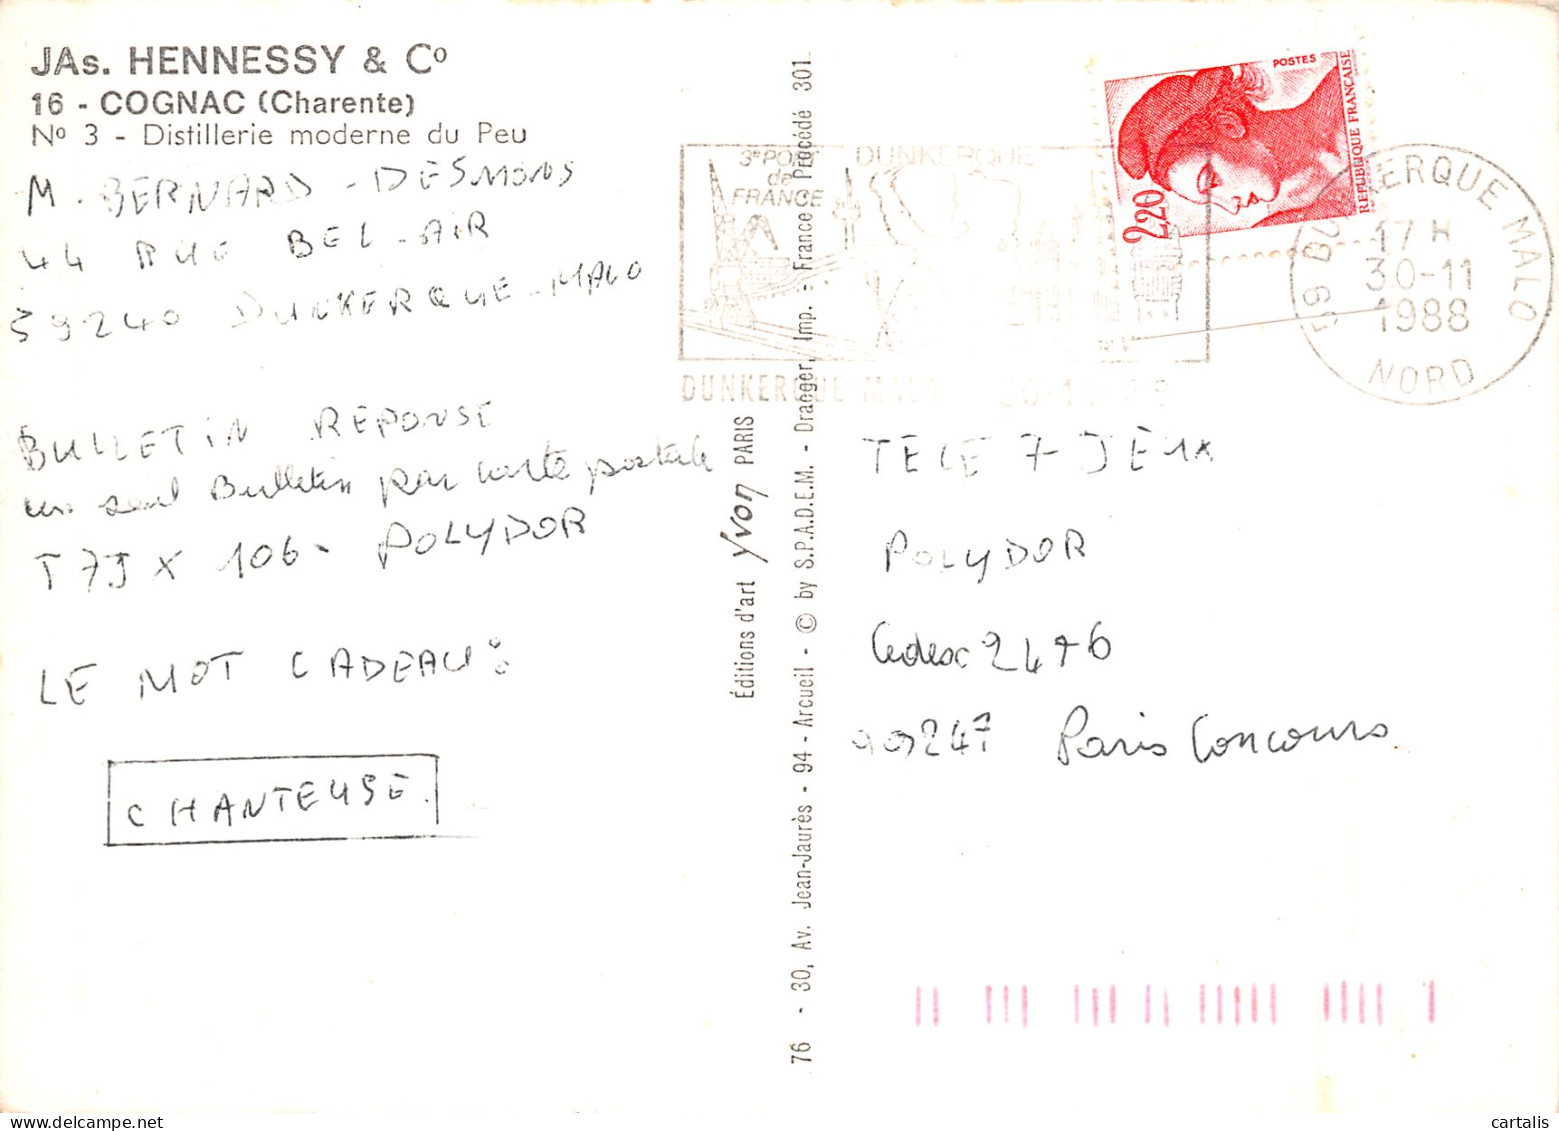 JAs. HENNESSY & Cº
16 - COGNAC (Charente)
Nº 3 - Distillerie moderne du Peu
M. BERNARD - DESMONS
44 RUE BEL-AIR
59240 DUNKERQUE-MALO
BULLETIN REPONSE
un seul Bulletin par carte postale
T7JX 106 - POLYDOR
LE MOT CADEAU :
CHANTEUSE.
Éditions d'art Yvon PARIS
76 - 30, Av. Jean-Jaurès - 94 - Arcueil - © by S.P.A.D.E.M. - Draeger, Imp. - France Procédé 301
3e PORT
de
FRANCE
DUNKERQUE
DUNKERQUE MALO
POSTES
REPUBLIQUE FRANÇAISE
2,20
59 DUNKERQUE MALO
17 H
30-11
1988
NORD
TELE 7 JEUX
POLYDOR
Cedex 2476
99247 Paris Concours
cartalis